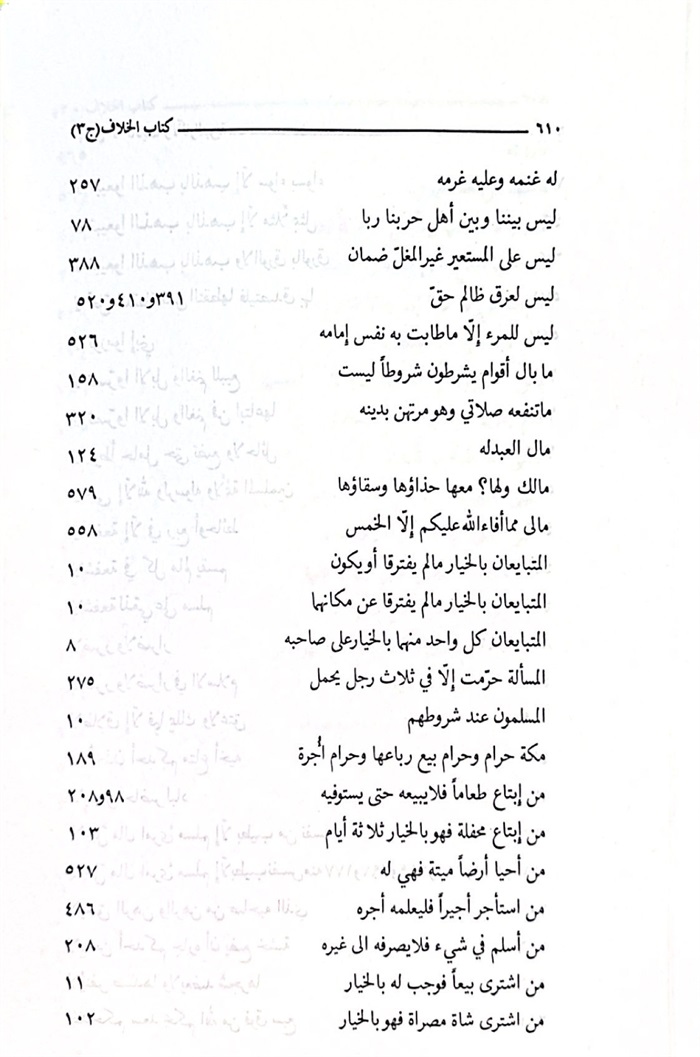 ٦١٠ ــــــ كتاب الخلاف (ج٣)
له غنمه وعليه غرمه ٢٥٧
ليس بيننا وبين أهل حربنا ربا ٧٨
ليس على المستعير غير المغلّ ضمان ٣٨٨
ليس لعرق ظالم حقّ ٣٩١و٤١٠و٥٢٠
ليس للمرء إلّا ماطابت به نفس إمامه ٥٢٦
ما بال أقوام يشرطون شروطاً ليست ١٥٨
ماتنفعه صلاتي وهو مرتهن بدينه ٣٢٠
مال العبدله ١٢٤
مالك ولها؟ معها حذاؤها وسقاؤها ٥٧٩
مالى مماأفاءالله عليكم إلّا الخمس ٥٥٨
المتبايعان بالخيار مالم يفترقا أو يكون ١٠
المتبايعان بالخيار مالم يفترقا عن مكانهما ١٠
المتبايعان كل واحد منهما بالخيار على صاحبه ٨
المسألة حرّمت إلّا في ثلاث رجل يحمل ٢٧٥
المسلمون عند شروطهم ١٠
مكة حرام وحرام بيع رباعها وحرام أُجرة ١٨٩
من إبتاع طعاماً فلايبيعه حتى يستوفيه ٩٨و٢٠٨
من إبتاع محفلة فهو بالخيار ثلاثة أيام ١٠٣
من أحيا أرضاً ميتة فهي له ٥٢٧
من استأجر أجيراً فليعلمه أجره ٤٨٦
من أسلم في شيء فلايصرفه الى غيره ٢٠٨
من اشترى بيعاً فوجب له بالخيار ١١
من اشترى شاة مصراة فهو بالخيار ١٠٢